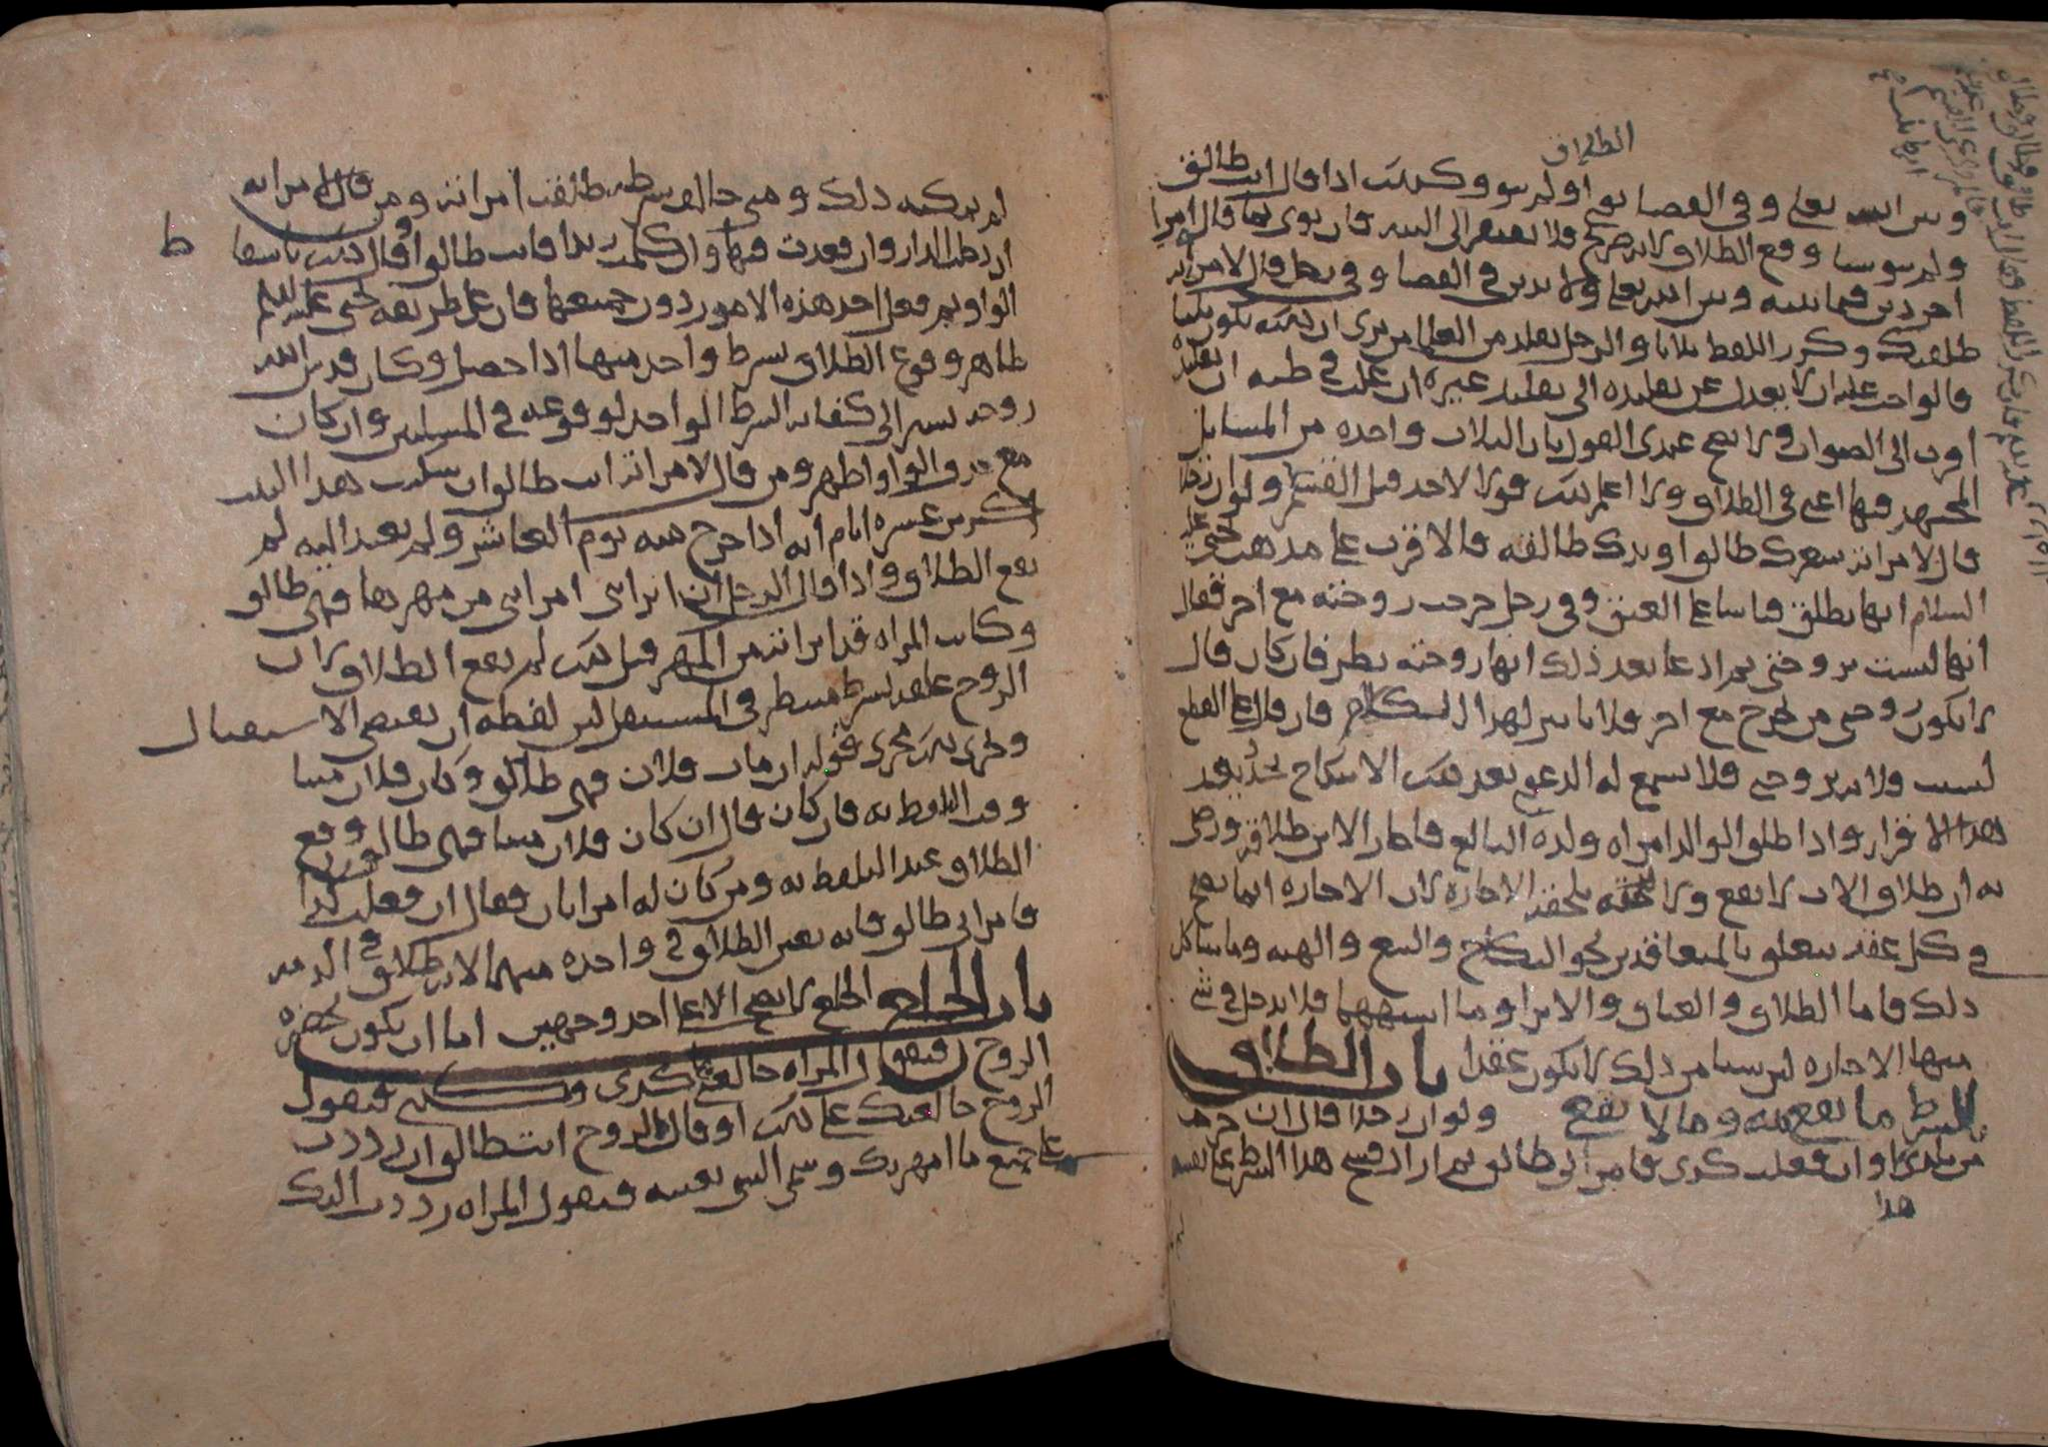 الطلاق
وبين الله تعلى وفي القضا نوى او لم ينو وكذلك اذا قال انت طالق
ولم ينو شيا وقع الطلاق لانه صريح فلا يفتقر الى النيه فان نوى بما قال امرا
اخر دين فيما بينه وبين الله تعلى ولا يدين في القضا وفي رجل قال لامراته
طلقتك وكرر اللفظ ثلاثا والرجل يقلد من العلما من يرى ان ذلك يكون ثلثا
فالواجب عليه ان لا يعدل عن تقليده الى تقليد غيره ان غلب في ظنه ان تقليده
اقرب الى الصواب ولا يصح عندي القول بان الثلاث واحده من المسايل
المجتهد فيها اعني في الطلاق ولا اعلم ذلك قولا لاحد قبل القسم ولو ان رجلا
قال لامراته شعرك طالق او يدك طالقه فالاقرب على مذهب يحيى عليه
السلام انها تطلق قياسا على العتق وفي رجل خرجت زوجته مع اخر فقال
انها ليست بزوجتي ثم ادعا بعد ذلك انها زوجته نظر فان كان قال
لا تكون زوجتي من تخرج مع اخر فلا تاثير لهذا الكلام فان قال على القطع
ليست فلانه بزوجتي فلا تسمع له الدعوى بعد ذلك الا بنكاح يجدد بعد
هذا الاقرار واذا طلق الوالد امراه ولده البالغ فاجاز الابن طلاقه ورضي
به ان طلاق الاب لا يقع ولا تلحقه الاجازه لان الاجازه انما تصح
في كل عقد يتعلق بالمتعاقدين نحو النكاح والبيع والهبه وما شاكل
ذلك فاما الطلاق والعتاق والابرا وما اشبهها فلا تدخل في شي
منها الاجازه ليس شيا من ذلك لا يكون عقدا باب الطلاق
بالشرط ما يقع منه وما لا يقع ولو ان رجلا قال ان خرجت
من بلدي او ان فعلت كذى فامراتي طالق ثم اراد فسخ هذا الشرط على نفسه
هذا
لم يمكنه ذلك ومتى خالف شرطه طلقت امراته ومن قال لامراته
ان دخلت الدار وان قعدت فيها وان كلمت زيدا فانت طالق او قال ذلك باسقاط
الواو ثم فعل احد هذه الامور دون جميعها فان على طريقه يحيى عليه السلم
ظاهر وقوع الطلاق بشرط واحد منها اذا حصل وكان قدس الله
روحه يشير الى كفايه الشرط الواحد لوقوعه في المسلتين وان كان
مع حذف الواو اظهر ومن قال لامراته انت طالق ان سكنت هذا البيت
اكثر من عشره ايام انه اذا خرج منه يوم العاشر ولم يعد اليه لم
يقع الطلاق واذا قال الرجل ان ابراتني امراتي من مهرها فهي طالق
وكانت المراه قد ابراته من المهر قبل ذلك لم يقع الطلاق لان
الزوج علقه بشرط منتظر في المستقبل لان لفظه ان تقتضي الاستقبال
وتجري ذلك مجرى قوله ان مات فلان فهي طالق وكان فلان ميتا
وقت اللفظ به فان كان قال ان كان فلان ميتا فهي طالق وقع
الطلاق عند التلفظ به ومن كان له امراتان فقال ان فعلت كذا
فامراتي طالق فانه يعين الطلاق في واحده منهما لان الطلاق في الذمه
باب الخلع الخلع لا يصح الا على احد وجهين اما ان يكون بحضره
الزوج فتقول المراه خالعني على كذى فيقول
الزوج خالعتك على ذلك او قال الزوج انت طالق ان رددت
على جميع ما امهرتك وسمى الشي بعينه فتقول المراه رددت اليك
ط